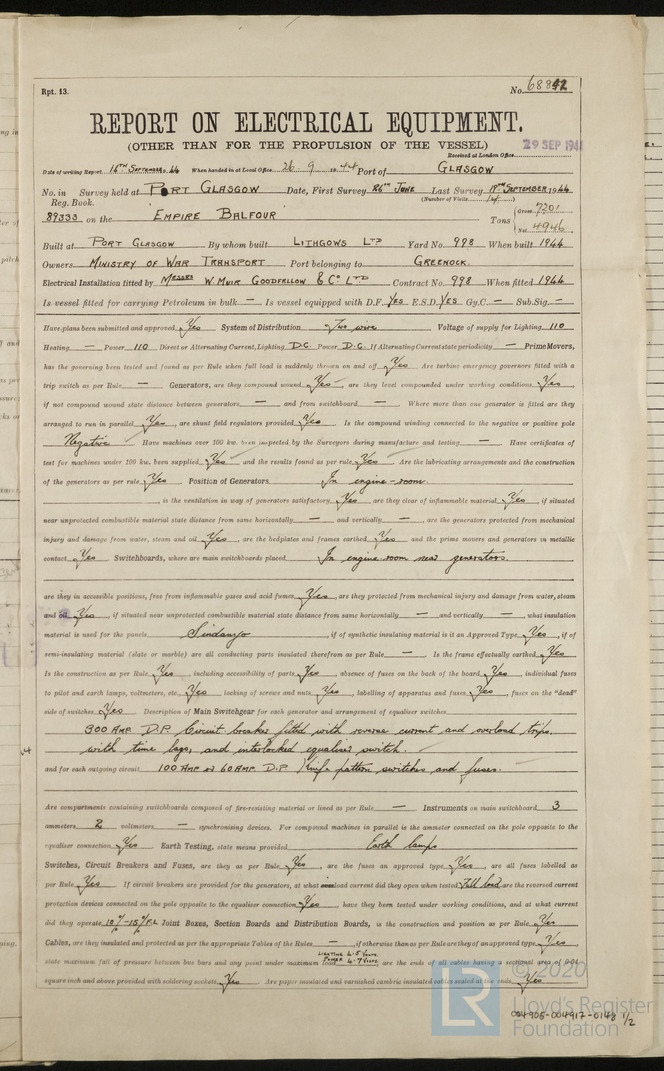 Rpt. 13.
No. 68842
REPORT ON ELECTRICAL EQUIPMENT.
(OTHER THAN FOR THE PROPULSION OF THE VESSEL)
29 SEP 1944
Received at London Office
Date of writing Report 16TH SEPTEMBER 1944 When handed in at Local Office 26 . 9 . 1944 Port of GLASGOW
No. in Survey held at PORT GLASGOW Date, First Survey 26TH JUNE Last Survey 19TH SEPTEMBER 1944
Reg. Book. (Number of Visits 14)
89333 on the EMPIRE BALFOUR Tons Gross 7201 Net 4946
Built at PORT GLASGOW By whom built LITHGOWS LTD Yard No. 998 When built 1944
Owners MINISTRY OF WAR TRANSPORT Port belonging to GREENOCK.
Electrical Installation fitted by MESSRS W. MUIR GOODFELLOW & Co LTD Contract No. 998 When fitted 1944
Is vessel fitted for carrying Petroleum in bulk — Is vessel equipped with D.F. YES E.S.D. YES Gy.C. — Sub.Sig. —
Have plans been submitted and approved Yes System of Distribution Two wire Voltage of supply for Lighting 110
Heating — Power 110 Direct or Alternating Current, Lighting D.C. Power D.C. If Alternating Current state periodicity — Prime Movers,
has the governing been tested and found as per Rule when full load is suddenly thrown on and off Yes Are turbine emergency governors fitted with a
trip switch as per Rule — Generators, are they compound wound Yes, are they level compounded under working conditions Yes,
if not compound wound state distance between generators — and from switchboard — Where more than one generator is fitted are they
arranged to run in parallel Yes, are shunt field regulators provided Yes Is the compound winding connected to the negative or positive pole
Negative Have machines over 100 kw. been inspected by the Surveyors during manufacture and testing — Have certificates of
test for machines under 100 kw. been supplied Yes and the results found as per rule Yes Are the lubricating arrangements and the construction
of the generators as per rule Yes Position of Generators In engine-room
, is the ventilation in way of generators satisfactory Yes are they clear of inflammable material Yes, if situated
near unprotected combustible material state distance from same horizontally — and vertically —, are the generators protected from mechanical
injury and damage from water, steam and oil Yes, are the bedplates and frames earthed Yes and the prime movers and generators in metallic
contact Yes Switchboards, where are main switchboards placed In engine-room near generators.
are they in accessible positions, free from inflammable gases and acid fumes Yes, are they protected from mechanical injury and damage from water, steam
and oil Yes, if situated near unprotected combustible material state distance from same horizontally — and vertically —, what insulation
material is used for the panels Sindanyo, if of synthetic insulating material is it an Approved Type Yes, if of
semi-insulating material (slate or marble) are all conducting parts insulated therefrom as per Rule — Is the frame effectually earthed Yes
Is the construction as per Rule Yes, including accessibility of parts Yes, absence of fuses on the back of the board Yes, individual fuses
to pilot and earth lamps, voltmeters, etc. Yes locking of screws and nuts Yes, labelling of apparatus and fuses Yes, fuses on the "dead"
side of switches Yes Description of Main Switchgear for each generator and arrangement of equaliser switches
300 AMP D.P. Circuit breaker fitted with reverse current and overload trips,
with time lags, and interlocked equaliser switch.
and for each outgoing circuit 100 AMP or 60 AMP. D.P Knife pattern switches and fuses.
Are compartments containing switchboards composed of fire-resisting material or lined as per Rule — Instruments on main switchboard 3
ammeters 2 voltmeters — synchronising devices. For compound machines in parallel is the ammeter connected on the pole opposite to the
equaliser connection Yes Earth Testing, state means provided Earth lamps
Switches, Circuit Breakers and Fuses, are they as per Rule Yes, are the fuses an approved type Yes, are all fuses labelled as
per Rule Yes If circuit breakers are provided for the generators, at what load current did they open when tested Full load, are the reversed current
protection devices connected on the pole opposite to the equaliser connection Yes, have they been tested under working conditions, and at what current
did they operate 10%-15% F.L. Joint Boxes, Section Boards and Distribution Boards, is the construction and position as per Rule Yes
Cables, are they insulated and protected as per the appropriate Tables of the Rules —, if otherwise than as per Rule are they of an approved type Yes,
state maximum fall of pressure between bus bars and any point under maximum load LIGHTING 4.5 Volts POWER 4.7 Volts, are the ends of all cables having a sectional area of 0.04
square inch and above provided with soldering sockets Yes Are paper insulated and varnished cambric insulated cables sealed at the ends Yes
© 2020
LR
Lloyd's Register
Foundation
004905-004917-0148 1/2